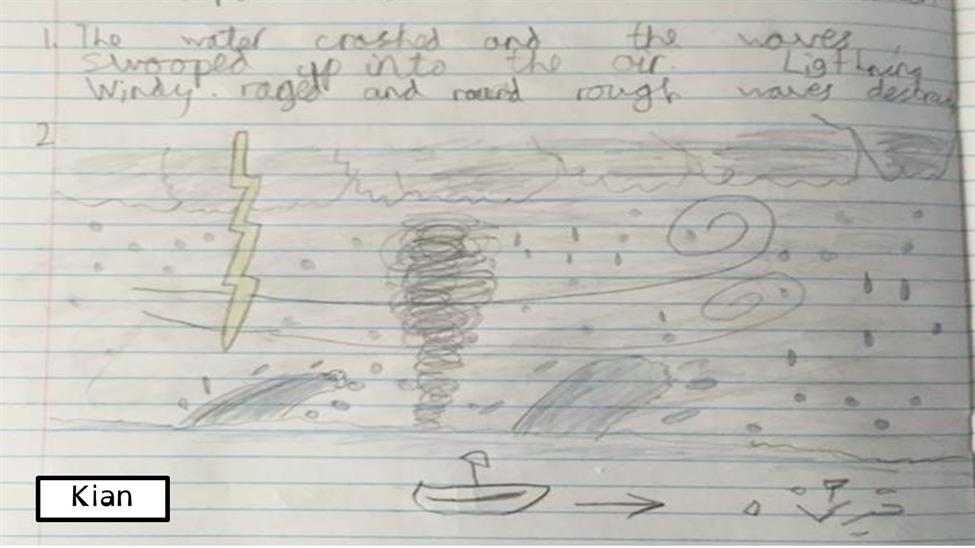 1. The water crashed and the waves
swooped up into the air. Lightning
Windy. raged and round rough waves destroy
2
Kian